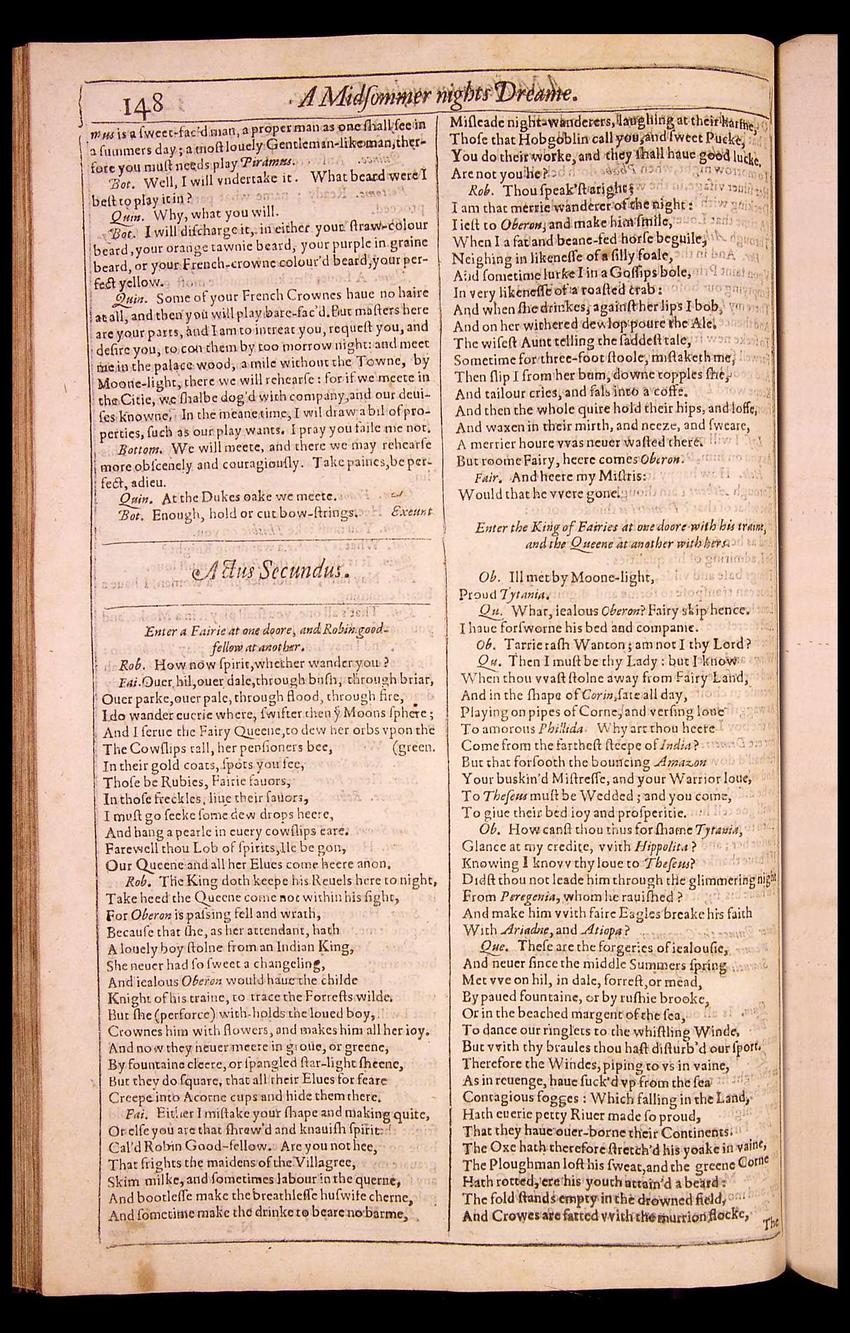 148
A Midſommer nights Dreame.
mus is a ſweet-fac'd man, a proper man as one ſhall ſee in
a ſummers day; a moſt louely Gentleman-like man, ther-
fore you muſt needs play Piramus.
Bot. Well, I will vndertake it. What beard were I
beſt to play it in?
Quin. Why, what you will.
Bot. I will diſcharge it, in either your ſtraw-colour
beard, your orange tawnie beard, your purple in graine
beard, or your French-crowne colour'd beard, your per-
fect yellow.
Quin. Some of your French Crownes haue no haire
at all, and then you will play bare-fac'd. But maſters here
are your parts, and I am to intreat you, requeſt you, and
deſire you, to con them by too morrow night: and meet
me in the palace wood, a mile without the Towne, by
Moone-light, there we will rehearſe: for if we meete in
the Citie, we ſhalbe dog'd with company, and our deui-
ſes knowne. In the meane time, I wil draw a bil of pro-
perties, ſuch as our play wants. I pray you faile me not.
Bottom. We will meete, and there we may rehearſe
more obſcenely and couragiouſly. Take paines, be per-
fect, adieu.
Quin. At the Dukes oake we meete.
Bot. Enough, hold or cut bow-ſtrings. Exeunt
Actus Secundus.
Enter a Fairie at one doore, and Robin good-
fellow at another.
Rob. How now ſpirit, whether wander you?
Fai. Ouer hil, ouer dale, through buſh, through briar,
Ouer parke, ouer pale, through flood, through fire,
I do wander euerie where, ſwifter then yͤ Moons ſphere;
And I ſerue the Fairy Queene, to dew her orbs vpon the
The Cowſlips tall, her penſioners bee, (green.
In their gold coats, ſpots you ſee,
Thoſe be Rubies, Fairie fauors,
In thoſe freckles, liue their ſauors,
I muſt go ſeeke ſome dew drops heere,
And hang a pearle in euery cowſlips eare.
Farewell thou Lob of ſpirits, Ile be gon,
Our Queene and all her Elues come heere anon.
Rob. The King doth keepe his Reuels here to night,
Take heed the Queene come not within his ſight,
For Oberon is paſſing fell and wrath,
Becauſe that ſhe, as her attendant, hath
A louely boy ſtolne from an Indian King,
She neuer had ſo ſweet a changeling,
And iealous Oberon would haue the childe
Knight of his traine, to trace the Forreſts wilde.
But ſhe (perforce) with-holds the loued boy,
Crownes him with flowers, and makes him all her ioy.
And now they neuer meete in groue, or greene,
By fountaine cleere, or ſpangled ſtar-light ſheene,
But they do ſquare, that all their Elues for feare
Creepe into Acorne cups and hide them there.
Fai. Either I miſtake your ſhape and making quite,
Or elſe you are that ſhrew'd and knauiſh ſpirit
Cal'd Robin Good-fellow. Are you not hee,
That frights the maidens of the Villagree,
Skim milke, and ſometimes labour in the querne,
And bootleſſe make the breathleſſe huſwife cherne,
And ſometime make the drinke to beare no barme,
Miſleade night-wanderers, laughing at their harme,
Thoſe that Hobgoblin call you, and ſweet Pucke,
You do their worke, and they ſhall haue good lucke.
Are not you he?
Rob. Thou ſpeak'ſt aright;
I am that merrie wanderer of the night:
I ieſt to Oberon, and make him ſmile,
When I a fat and beane-fed horſe beguile,
Neighing in likeneſſe of a ſilly foale,
And ſometime lurke I in a Goſſips bole,
In very likeneſſe of a roaſted crab:
And when ſhe drinkes, againſt her lips I bob,
And on her withered dewlop poure the Ale.
The wiſeſt Aunt telling the ſaddeſt tale,
Sometime for three-foot ſtoole, miſtaketh me,
Then ſlip I from her bum, downe topples ſhe,
And tailour cries, and fals into a coffe.
And then the whole quire hold their hips, and loffe,
And waxen in their mirth, and neeze, and ſweare,
A merrier houre vvas neuer waſted there.
But roome Fairy, heere comes Oberon.
Fair. And heere my Miſtris:
Would that he vvere gone.
Enter the King of Fairies at one doore with his traine,
and the Queene at another with hers.
Ob. Ill met by Moone-light,
Proud Tytania.
Qu. What, iealous Oberon? Fairy skip hence.
I haue forſworne his bed and companie.
Ob. Tarrie raſh Wanton; am not I thy Lord?
Qu. Then I muſt be thy Lady: but I know
When thou vvaſt ſtolne away from Fairy Land,
And in the ſhape of Corin, ſate all day,
Playing on pipes of Corne, and verſing loue
To amorous Phillida. Why art thou heere
Come from the fartheſt ſteepe of India?
But that forſooth the bouncing Amazon
Your buskin'd Miſtreſſe, and your Warrior loue,
To Theſeus muſt be Wedded; and you come,
To giue their bed ioy and proſperitie.
Ob. How canſt thou thus for ſhame Tytania,
Glance at my credite, vvith Hippolita?
Knowing I knovv thy loue to Theſeus?
Didſt thou not leade him through the glimmering night
From Peregenia, whom he rauiſhed?
And make him vvith faire Eagles breake his faith
With Ariadne, and Atiopa?
Que. Theſe are the forgeries of iealouſie,
And neuer ſince the middle Summers ſpring
Met vve on hil, in dale, forreſt, or mead,
By paued fountaine, or by ruſhie brooke,
Or in the beached margent of the ſea,
To dance our ringlets to the whiſtling Winde,
But vvith thy braules thou haſt diſturb'd our ſport.
Therefore the Windes, piping to vs in vaine,
As in reuenge, haue ſuck'd vp from the ſea
Contagious fogges: Which falling in the Land,
Hath euerie petty Riuer made ſo proud,
That they haue ouer-borne their Continents.
The Oxe hath therefore ſtretch'd his yoake in vaine,
The Ploughman loſt his ſweat, and the greene Corne
Hath rotted, ere his youth attain'd a beard:
The fold ſtands empty in the drowned field,
And Crowes are fatted vvith the murrion flocke,
The